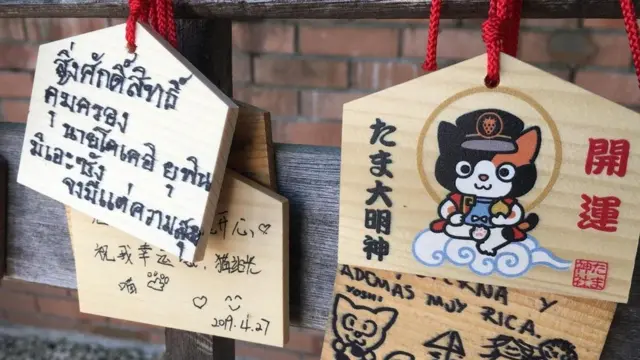 สิ่งศักดิ์สิทธิ์
คุ้มครอง
นายโคเคอิ ยุพิน
มิเอะซัง
จงมีแต่ความสุข
开心,
祝我幸运。猫
喵
2019.4.27
たま大明神
開運
たま
神社
ADEMAS MUY RICA.
YOSHI